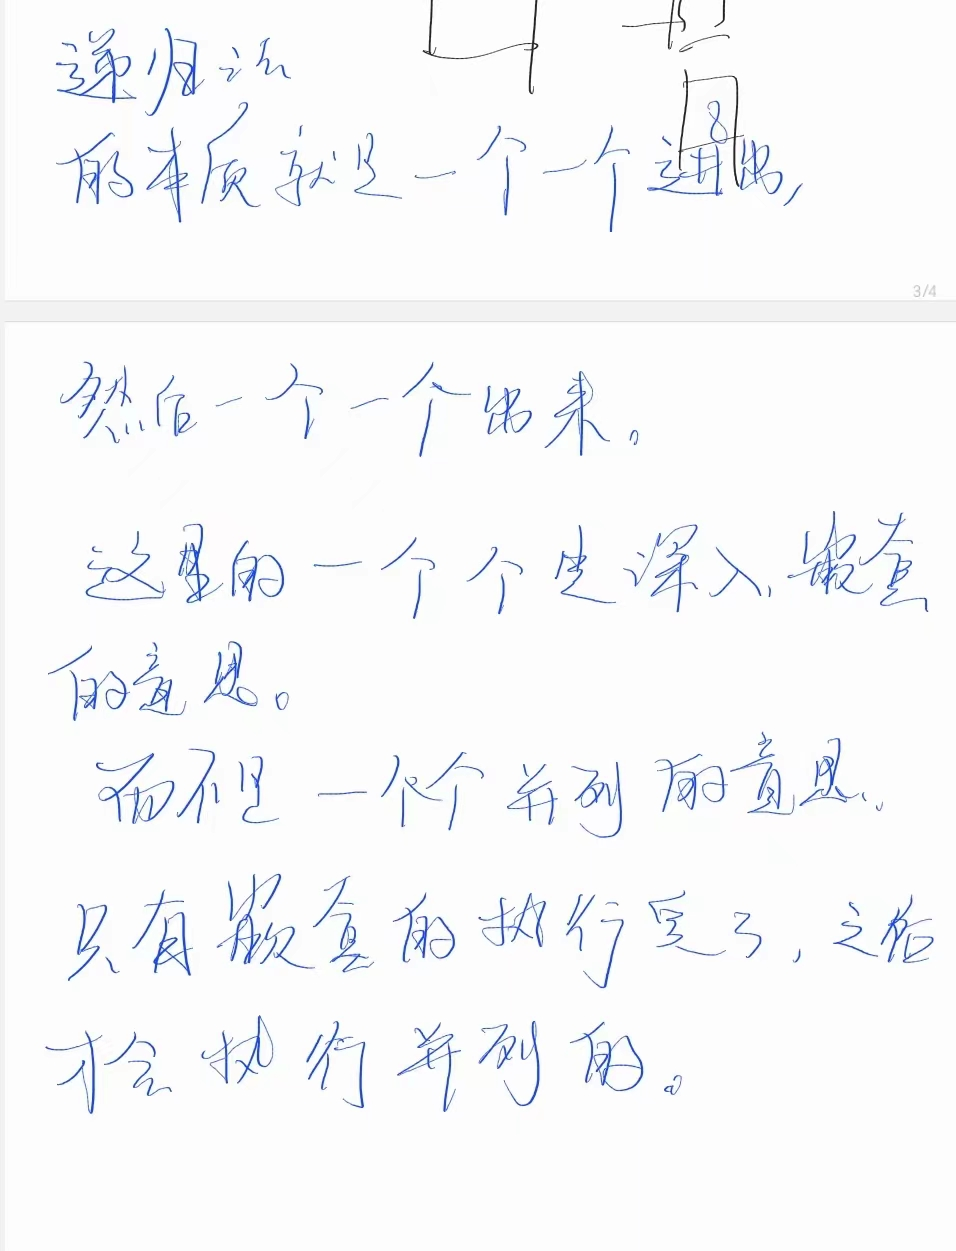 递归法
8
的本质就是一个一个进出,
3/4
然后一个一个出来。
这里的一个个是深入、嵌套
的意思。
而不是一个个并列的意思.
只有嵌套的执行完了,之后
才会执行并列的。